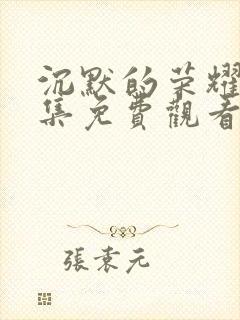 沉默的荣耀
集免費觀看
張袁元